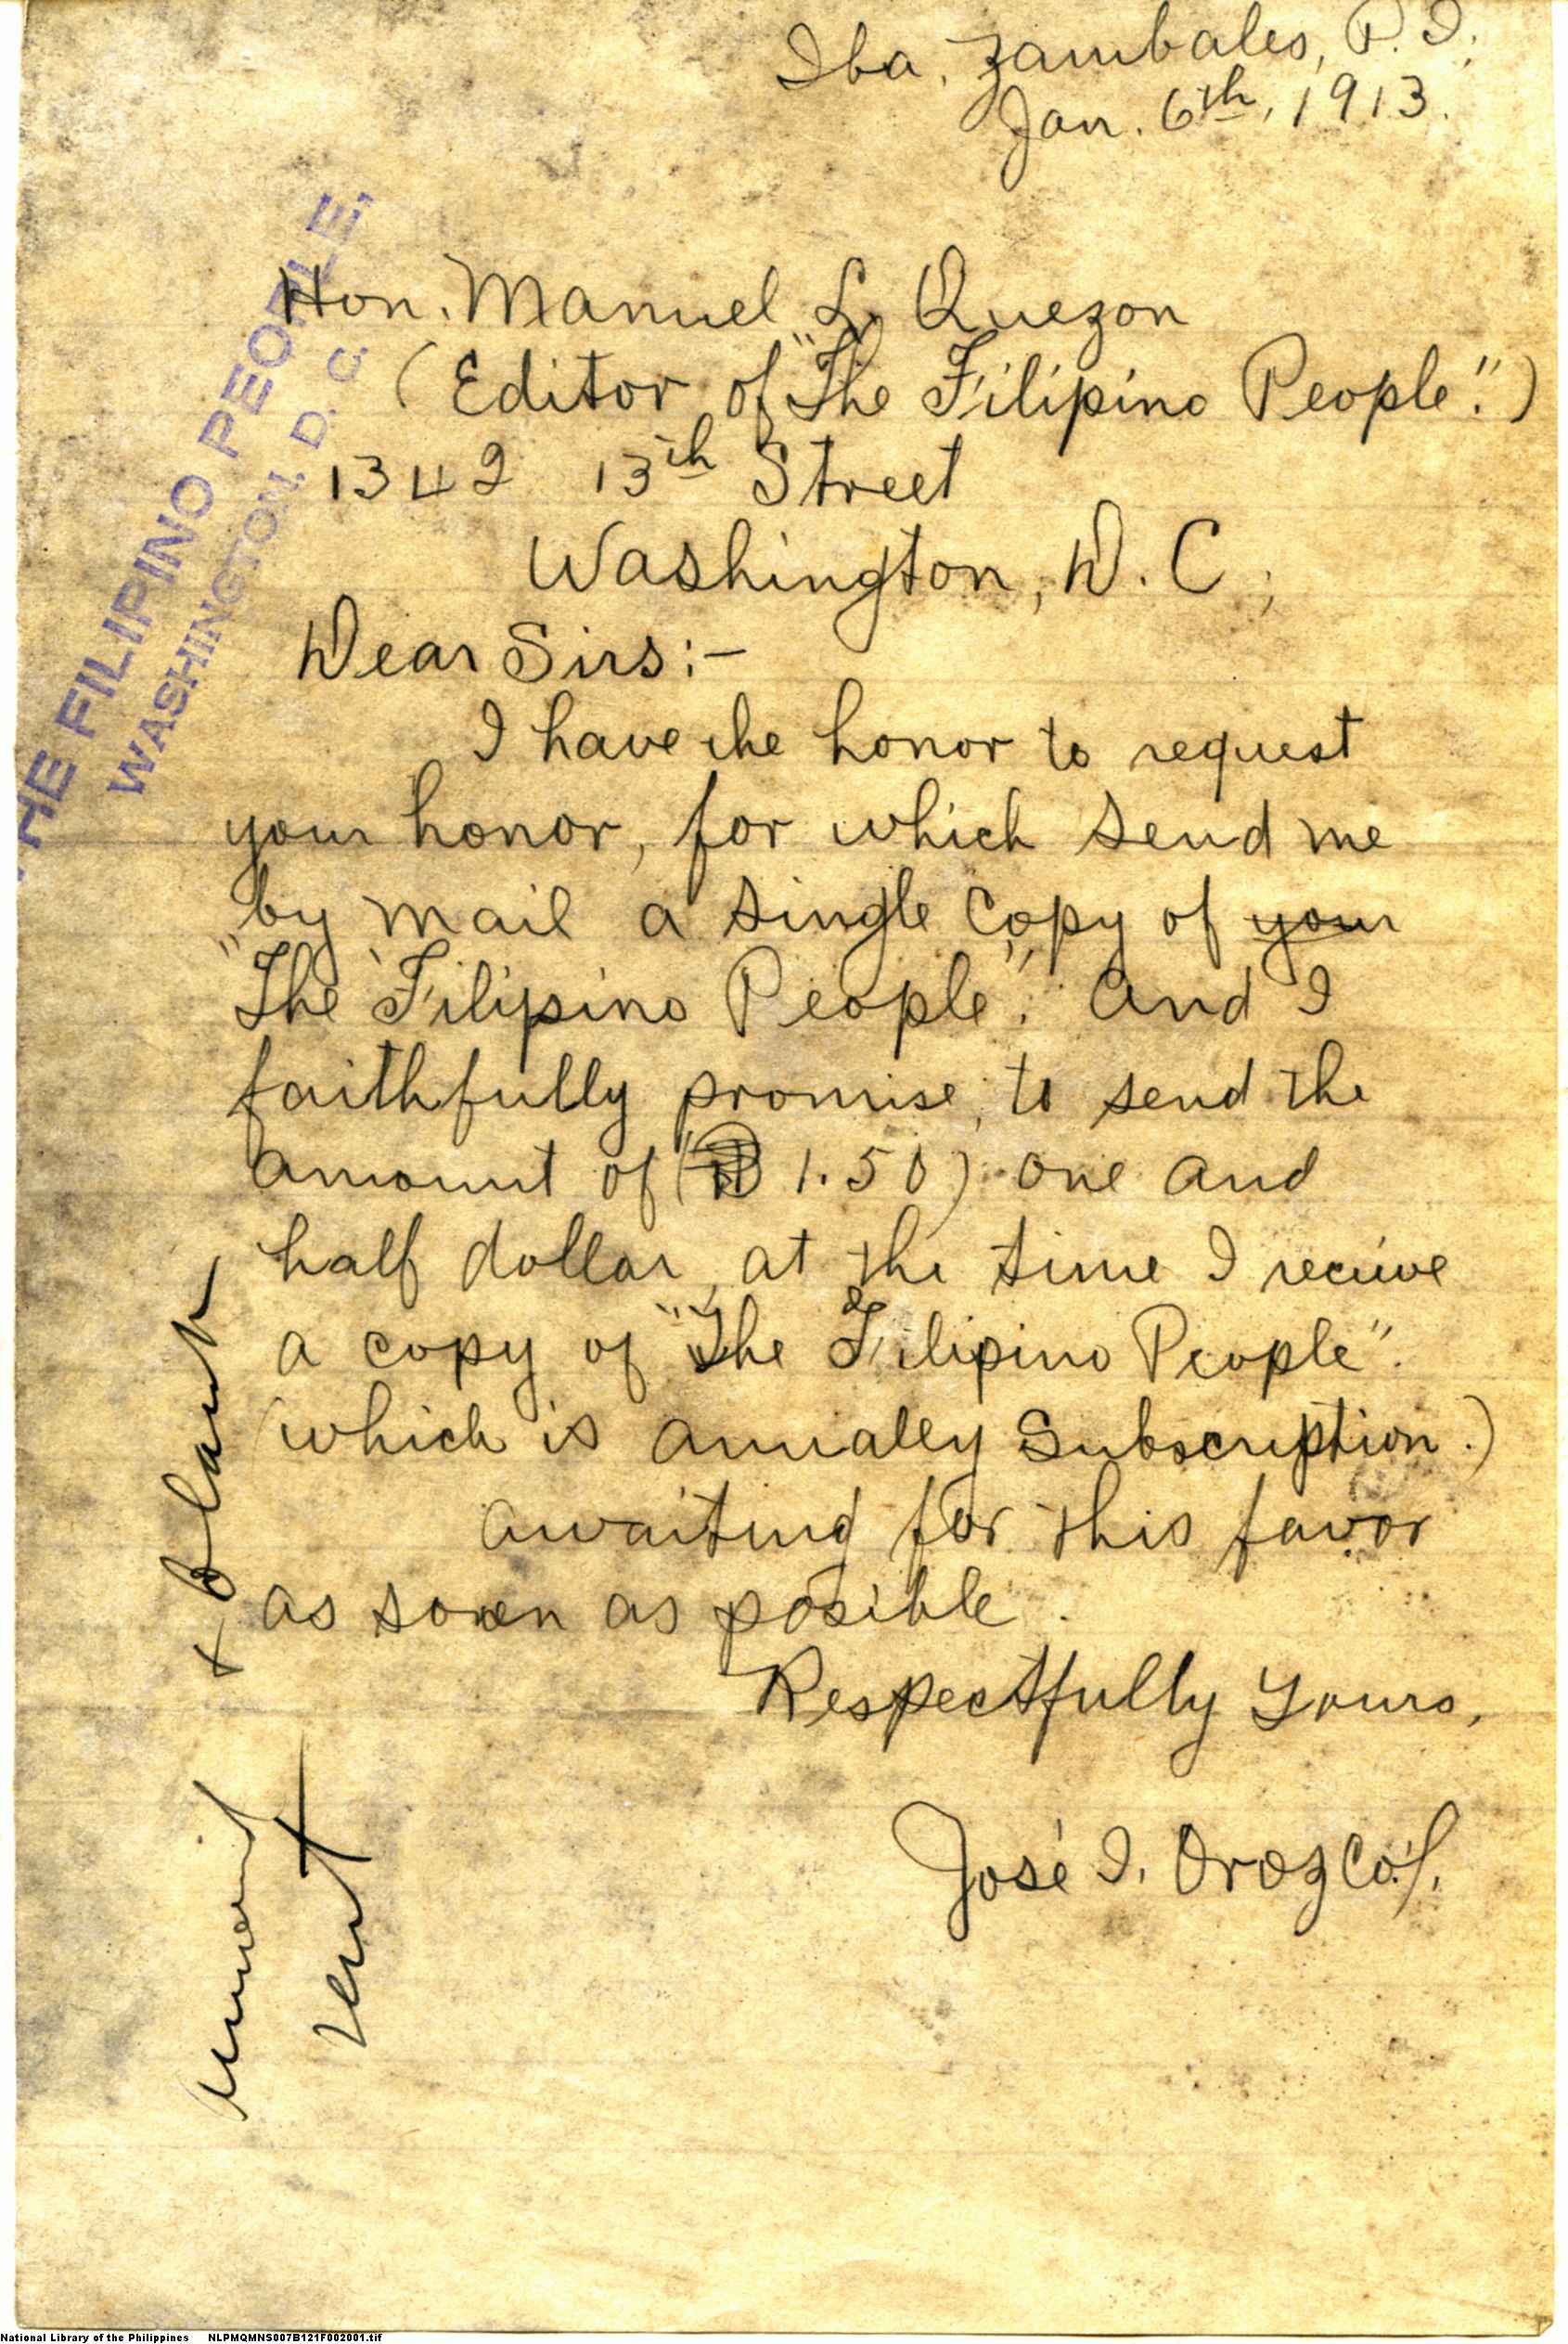 Iba, Zambales, P. I.,
Jan. 6th, 1913.
THE FILIPINO PEOPLE,
WASHINGTON, D. C.
Hon. Manuel L. Quezon
(Editor of "The Filipino People".)
1342 13th Street
Washington, D. C,
Dear Sirs:-
I have the honor to request
your honor, for which send me
by mail a single copy of your
"The Filipino People". And I
faithfully promise, to send the
amount of ( 1.50) one and
half dollar, at the time I recieve
a copy of "The Filipino People".
(which is annualey Subscription.)
Awaiting for this favor
as soon as posible.
Respectfully Yours,
José I. Orozco
+ blank
sent
National Library of the Philippines NLPMQMNS007B121F002001.tif